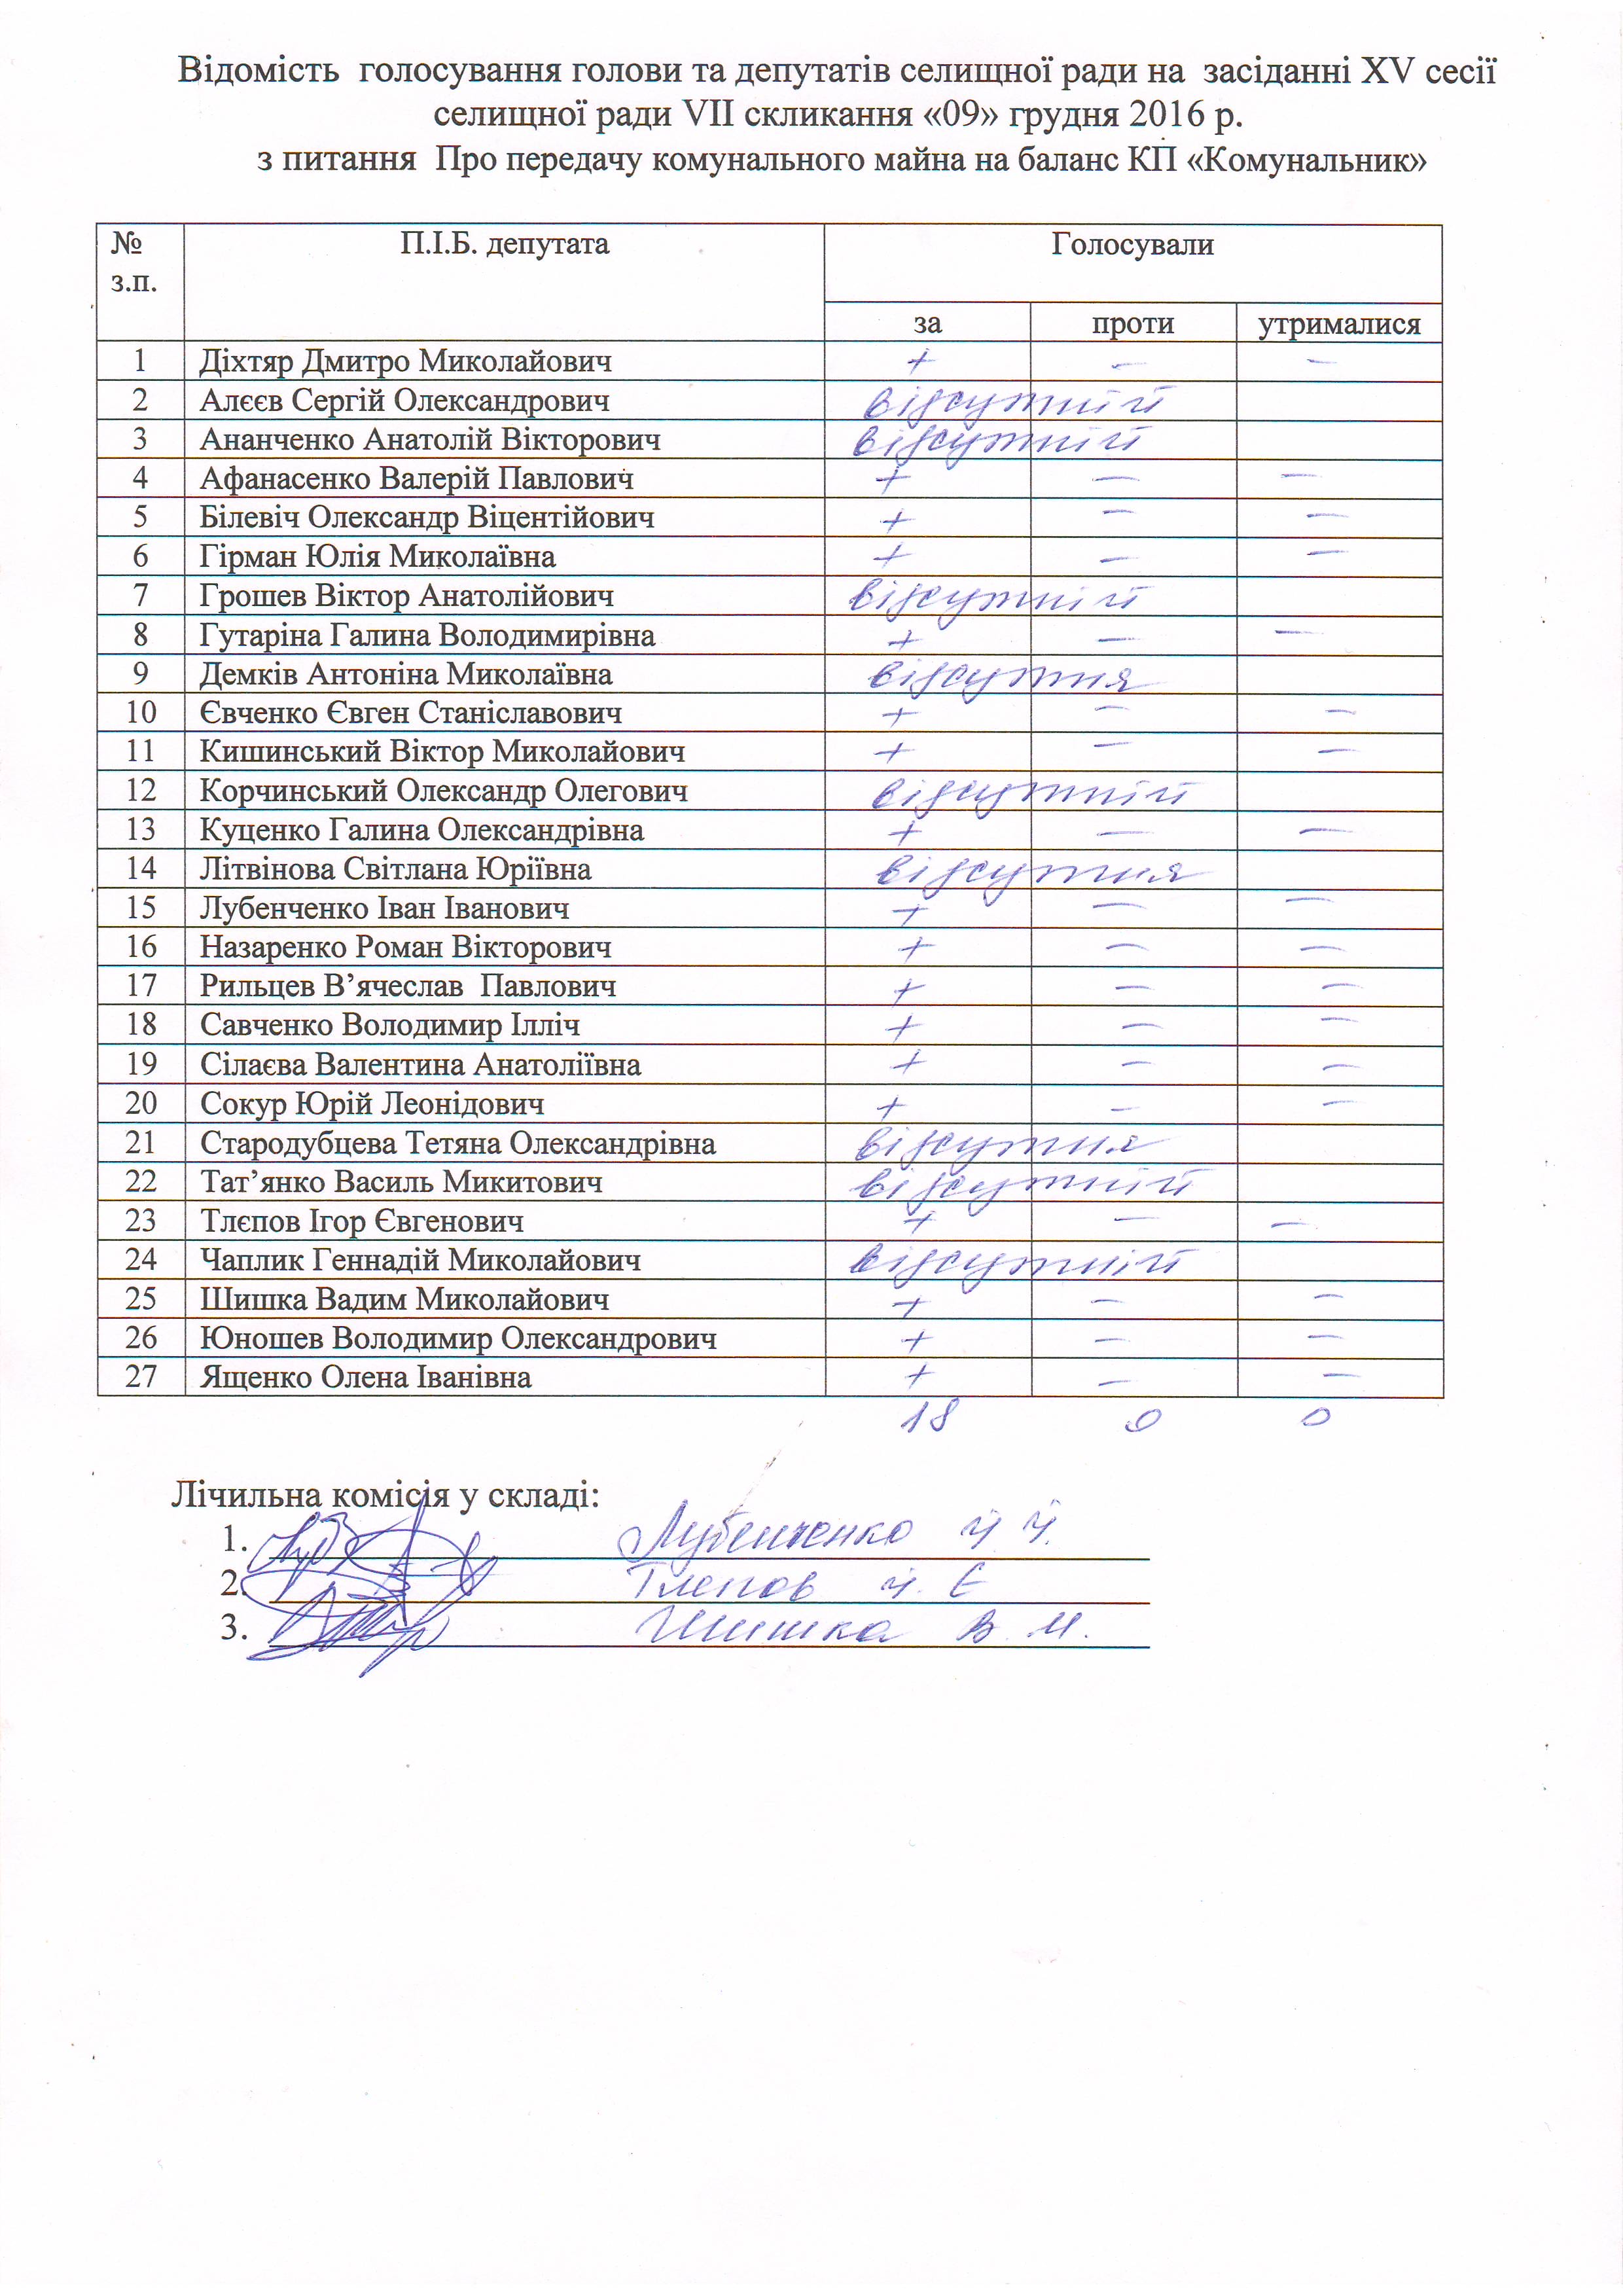 Відомість голосування голови та депутатів селищної ради на засіданні XV сесії
селищної ради VII скликання «09» грудня 2016 р.
з питання Про передачу комунального майна на баланс КП «Комунальник»
№ з.п. П.І.Б. депутата Голосували
за проти утрималися
1 Діхтяр Дмитро Миколайович + – –
2 Алєєв Сергій Олександрович відсутній
3 Ананченко Анатолій Вікторович відсутній
4 Афанасенко Валерій Павлович + – –
5 Білевіч Олександр Віцентійович + – –
6 Гірман Юлія Миколаївна + – –
7 Грошев Віктор Анатолійович відсутній
8 Гутаріна Галина Володимирівна + – –
9 Демків Антоніна Миколаївна відсутня
10 Євченко Євген Станіславович + – –
11 Кишинський Віктор Миколайович + – –
12 Корчинський Олександр Олегович відсутній
13 Куценко Галина Олександрівна + – –
14 Літвінова Світлана Юріївна відсутня
15 Лубенченко Іван Іванович + – –
16 Назаренко Роман Вікторович + – –
17 Рильцев В’ячеслав Павлович + – –
18 Савченко Володимир Ілліч + – –
19 Сілаєва Валентина Анатоліївна + – –
20 Сокур Юрій Леонідович + – –
21 Стародубцева Тетяна Олександрівна відсутня
22 Тат’янко Василь Микитович відсутній
23 Тлєпов Ігор Євгенович + – –
24 Чаплик Геннадій Миколайович відсутній
25 Шишка Вадим Миколайович + – –
26 Юношев Володимир Олександрович + – –
27 Ященко Олена Іванівна + – –
18 0 0
Лічильна комісія у складі:
1. Лубенченко І. І.
2. Тлєпов І. Є
3. Шишка В. М.